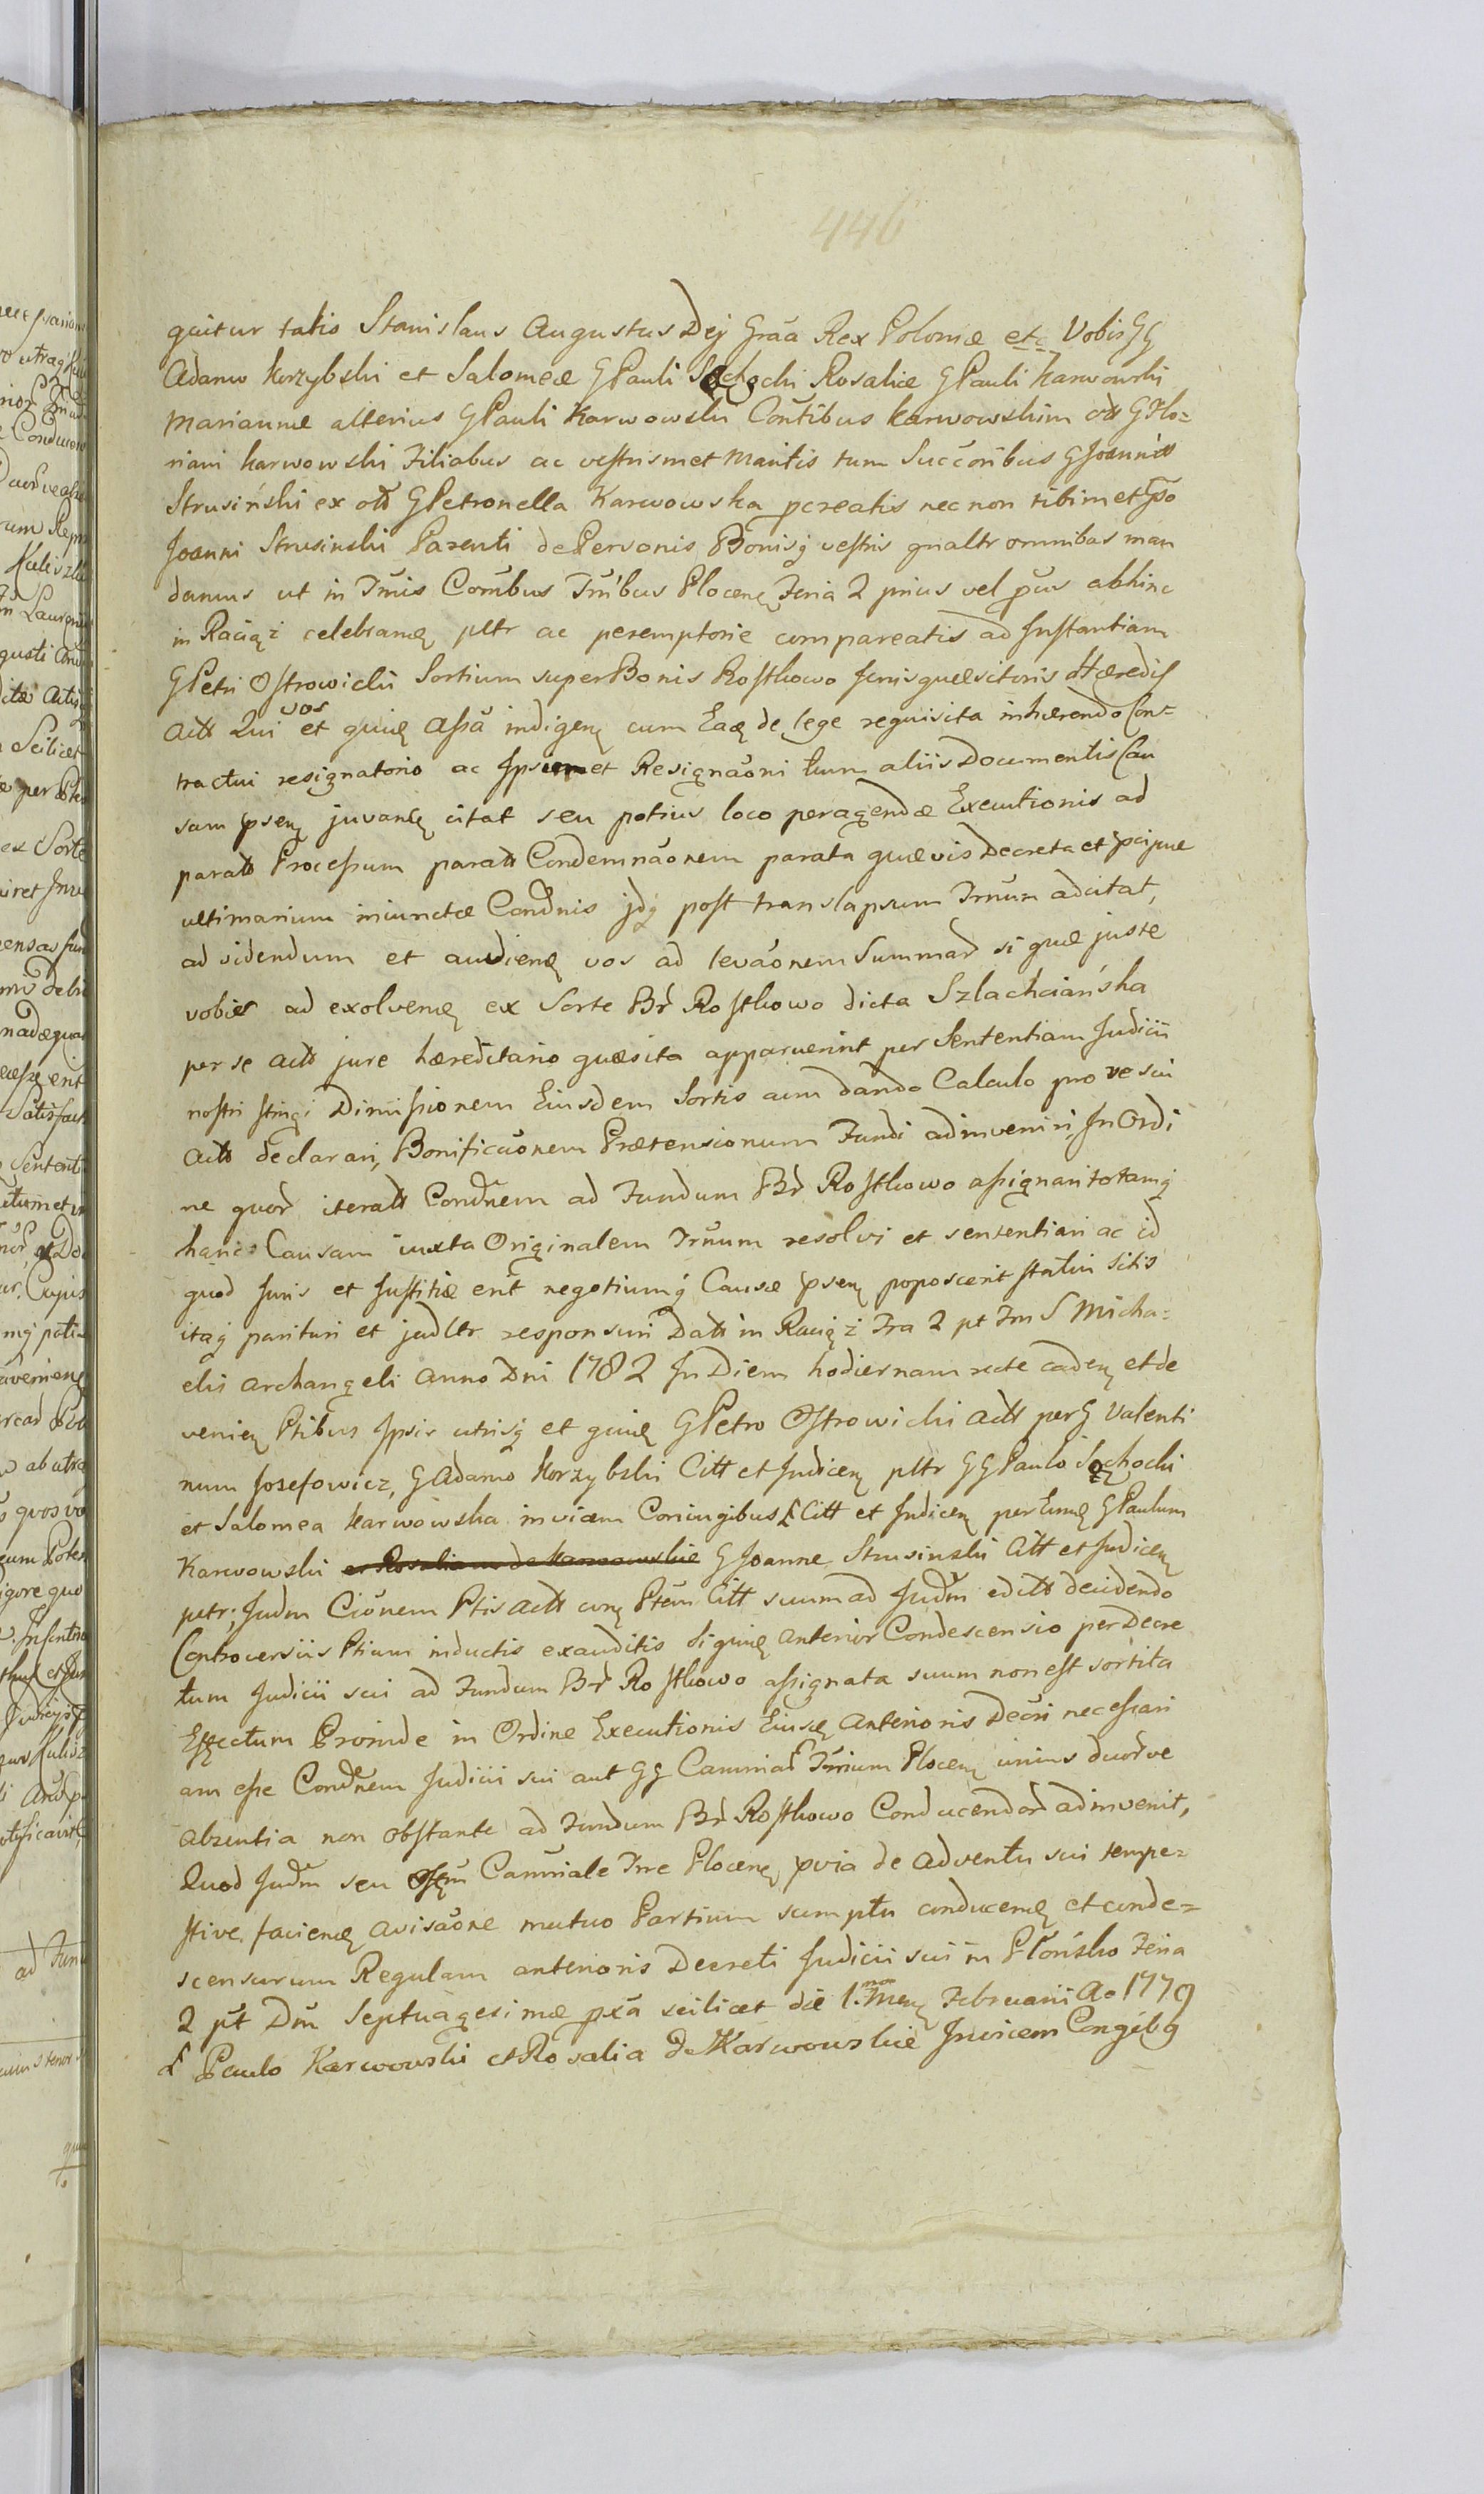 446
quitur talis Stanislaus Augustus Dej Grãa Rex Poloniæ etc Vobis GG
Adamo Korzybski et Salomeæ G Pauli Sęchocki Rosaliæ G Pauli Karwowski
Mariannæ alterius G Pauli Karwowski Contibus Karwowskim ott G Flo=
riani Karwowski Filiabus ac vestrismet Maritis tum Succoribus G Joannis
Strusiński ex ott G Petronella Karwowska pcreatis nec non tibimet Gso
Joanni Strusinski Parenti de Personis Bonisq vestris gnaltr omnibus man
damus ut in Tmis Conibus Trribus Plocenę Feria 2 prius vel pus abhinc
in Raciąż celebranę pltr ac peremptorie compareatis ad Instantiam
G Petri Ostrowicki Sortium super Bonis Rostkowo Juris quæsitoris Hæredis
Actt Qui vos et quinę Assa indigenę cum Eaę de lege requisita inhærendo Con=
tractui resignatorio ac Ipsimet Resignãoni tum aliis Documentis Cau
sam psenę juvantę citat seu potius loco peragendæ Executionis ad
paratt Processum paratt Condemnãonem parata quævis Decreta et pcipue
ultimarium iniunctæ Condnis jdq post translapsum Trnum adcitat,
ad videndum et audienę vos ad levãonem Summar si quæ juste
vobis ad exolvenę ex Sorte Br Rostkowo dicta Szlachciańska
per se actt jure hæreditario quæsita apparuerint per Sententiam Judicii
nostri stringi Dimissionem Eiusdem Sortis cum dando Calculo pro re sui
actt declarari, Bonificãonem Prætensionum Fundi adinveniri, In Ordi
ne quor iteratt Condnem ad Fundum Br Rostkowo assignari totamq
hanc Causam iuxta Originalem Trnum resolvi et sententiari ac id
quod Juris et Justitiæ erit negotiumq Causæ psenę poposcerit statui sitis
itaq parituri et judltr responsuri Datt in Raciąż Fra 2 pt Fm S Micha=
elis Archangeli Anno Dni 1782 In Diem hodiernam recte cadenę et de
venienę Ptibus Ipsis utrisq et quinę G Petro Ostrowicki Actt per G Valenti
num Josefowicz, G Adamo Korzybski Citt et Judicenę pltr GG Paulo Sęchocki
et Salomea Karwowska invicem Coniugibus £ Citt et Judicenę per Eunę G Paulum
Karwowski et Rosaliam de Karwowskie G Joanne Strusinski Citt et Judicenę
pltr; Judm Cionem Ptis Actt cunę Ptem Citt suum ad Judm editt decidendo
Controversiis Ptium inductis exauditis Siquinę anterior Condescensio per Decre
tum Judicii sui ad Fundum Br Rostkowo assignata suum non est sortita
Effectum Proinde in Ordine Executionis Eiusę anterioris Decri necessari
am esse Condnem Judicii sui aut GG Camniar Trrium Plocenę unius duorve
absentia non obstante ad Fundum Br Rostkowo Conducendor adinvenit,
Quod Judm seu Offm Camniale Trre Plocenę pvia de adventu sui tempe=
stive facienę avisãone mutuo Partium sumptu conducenę et conde=
scensurum Regulam anterioris Decreti Judicii sui in Płońsko Feria
2 pt Dm Septuagesimæ pxa scilicet die 1.ma Menę Februarii Ao 1779
£ Paulo Karwowski et Rosalia de Karwowskie Invicem Congibg